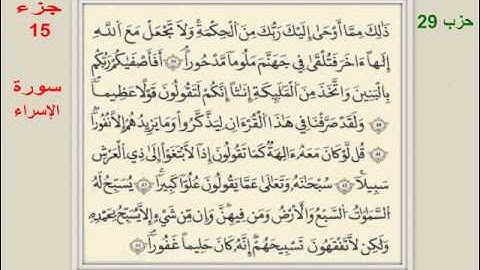 جزء
15
سورة
الإسراء
حزب 29
ذَٰلِكَ مِمَّا أَوْحَىٰ إِلَيْكَ رَبُّكَ مِنَ الْحِكْمَةِ وَلَا تَجْعَلْ مَعَ اللَّهِ
إِلَٰهًا ءَاخَرَ فَتُلْقَىٰ فِي جَهَنَّمَ مَلُومًا مَّدْحُورًا ٣٩ أَفَأَصْفَىٰكُمْ رَبُّكُم
بِالْبَنِينَ وَاتَّخَذَ مِنَ الْمَلَٰٓئِكَةِ إِنَٰثًا إِنَّكُمْ لَتَقُولُونَ قَوْلًا عَظِيمًا
٤٠ وَلَقَدْ صَرَّفْنَا فِي هَٰذَا الْقُرْءَانِ لِيَذَّكَّرُوا وَمَا يَزِيدُهُمْ إِلَّا نُفُورًا
٤١ قُل لَّوْ كَانَ مَعَهُ ءَالِهَةٌ كَمَا تَقُولُونَ إِذًا لَّابْتَغَوْا إِلَىٰ ذِي الْعَرْشِ
سَبِيلًا ٤٢ سُبْحَٰنَهُ وَتَعَٰلَىٰ عَمَّا يَقُولُونَ عُلُوًّا كَبِيرًا ٤٣ تُسَبِّحُ لَهُ
السَّمَٰوَٰتُ السَّبْعُ وَالْأَرْضُ وَمَن فِيهِنَّ وَإِن مِّن شَيْءٍ إِلَّا يُسَبِّحُ بِحَمْدِهِ
وَلَٰكِن لَّا تَفْقَهُونَ تَسْبِيحَهُمْ إِنَّهُ كَانَ حَلِيمًا غَفُورًا ٤٤